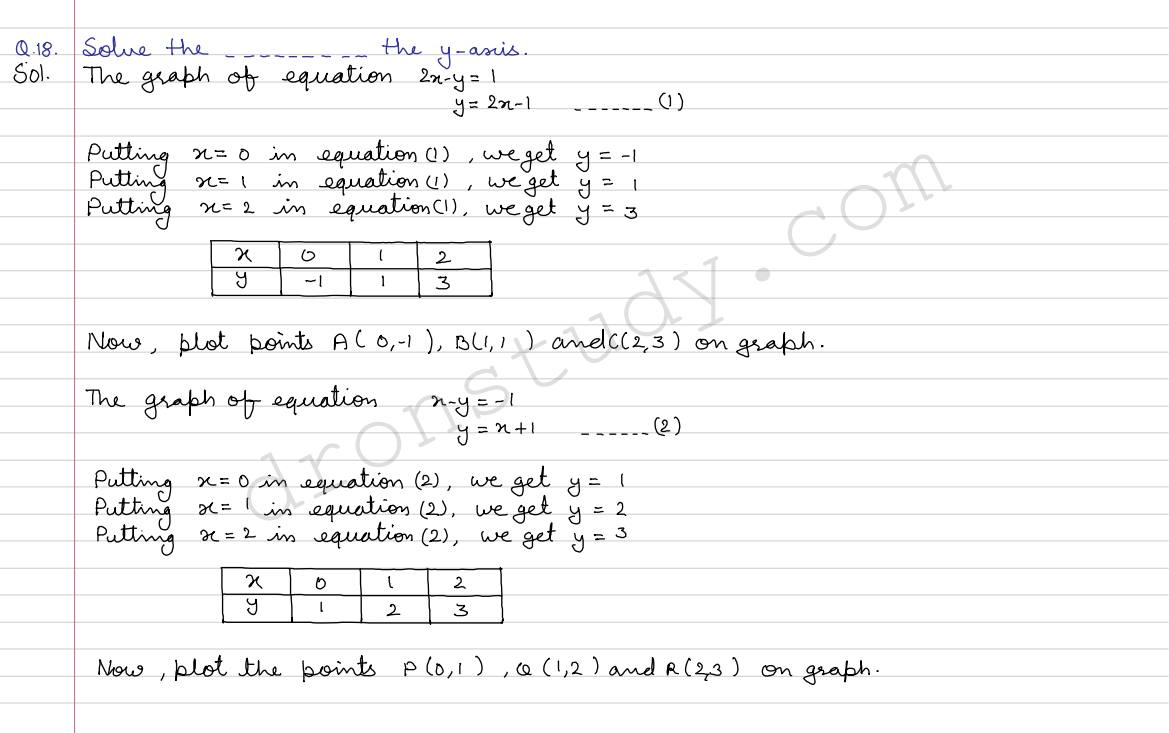 Q.18. Solve the _ _ _ _ _ _ _ _ _ the y-axis.
Sol. The graph of equation 2x-y = 1
y = 2x-1 _ _ _ _ _ _ _ (1)
Putting x = 0 in equation (1), we get y = -1
Putting x = 1 in equation (1), we get y = 1
Putting x = 2 in equation (1), we get y = 3
x 0 1 2
y -1 1 3
Now, plot points A(0,-1), B(1,1) and C(2,3) on graph.
The graph of equation x-y = -1
y = x+1 _ _ _ _ _ _ (2)
Putting x = 0 in equation (2), we get y = 1
Putting x = 1 in equation (2), we get y = 2
Putting x = 2 in equation (2), we get y = 3
x 0 1 2
y 1 2 3
Now, plot the points P(0,1), Q(1,2) and R(2,3) on graph.
dronstudy.com